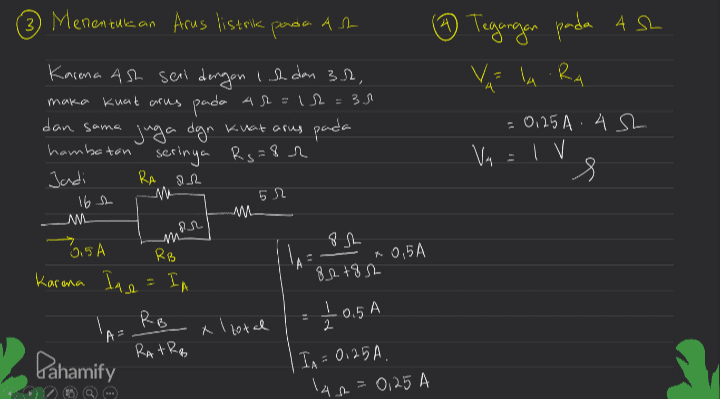 ③ Menentukan Arus listrik pada 4 Ω
Karena 4Ω seri dengan 1 Ω dan 3 Ω,
maka kuat arus pada 4 Ω = 1 Ω = 3 Ω
dan sama juga dgn kuat arus pada
hambatan serinya Rs = 8 Ω
Jadi
RA 8Ω
16 Ω
5 Ω
8Ω
0,5 A
RB
Karena I4Ω = IA
IA = RB / RA + RB x I total
IA = 8 Ω / 8Ω + 8Ω x 0,5A
= 1/2 0,5 A
IA = 0,25A.
I4Ω = 0,25 A
④ Tegangan pada 4 Ω
V4 = I4 . R4
= 0,25A . 4 Ω
V4 = 1 V
Pahamify